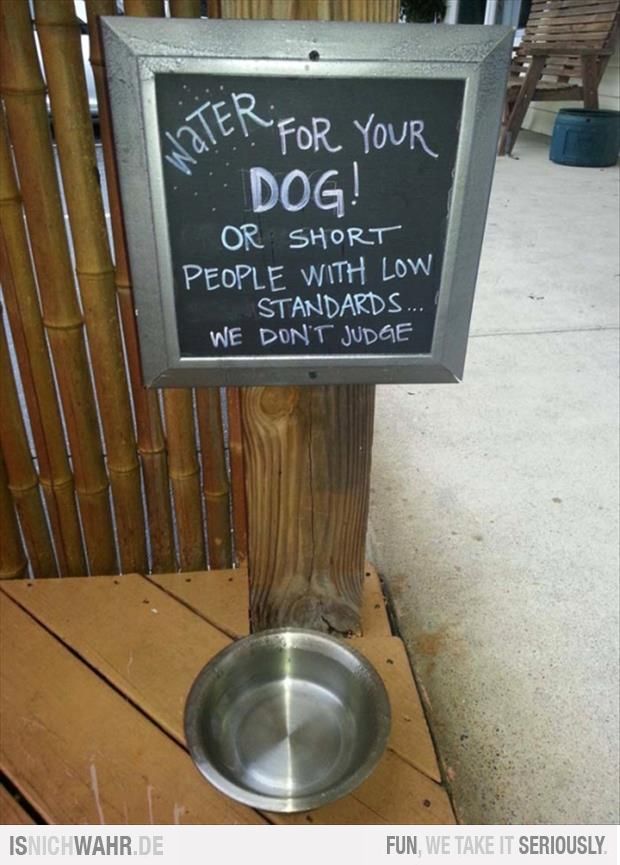 WATER FOR YOUR
DOG!
OR SHORT
PEOPLE WITH LOW
STANDARDS...
WE DON'T JUDGE
ISNICHWAHR.DE
FUN, WE TAKE IT SERIOUSLY.